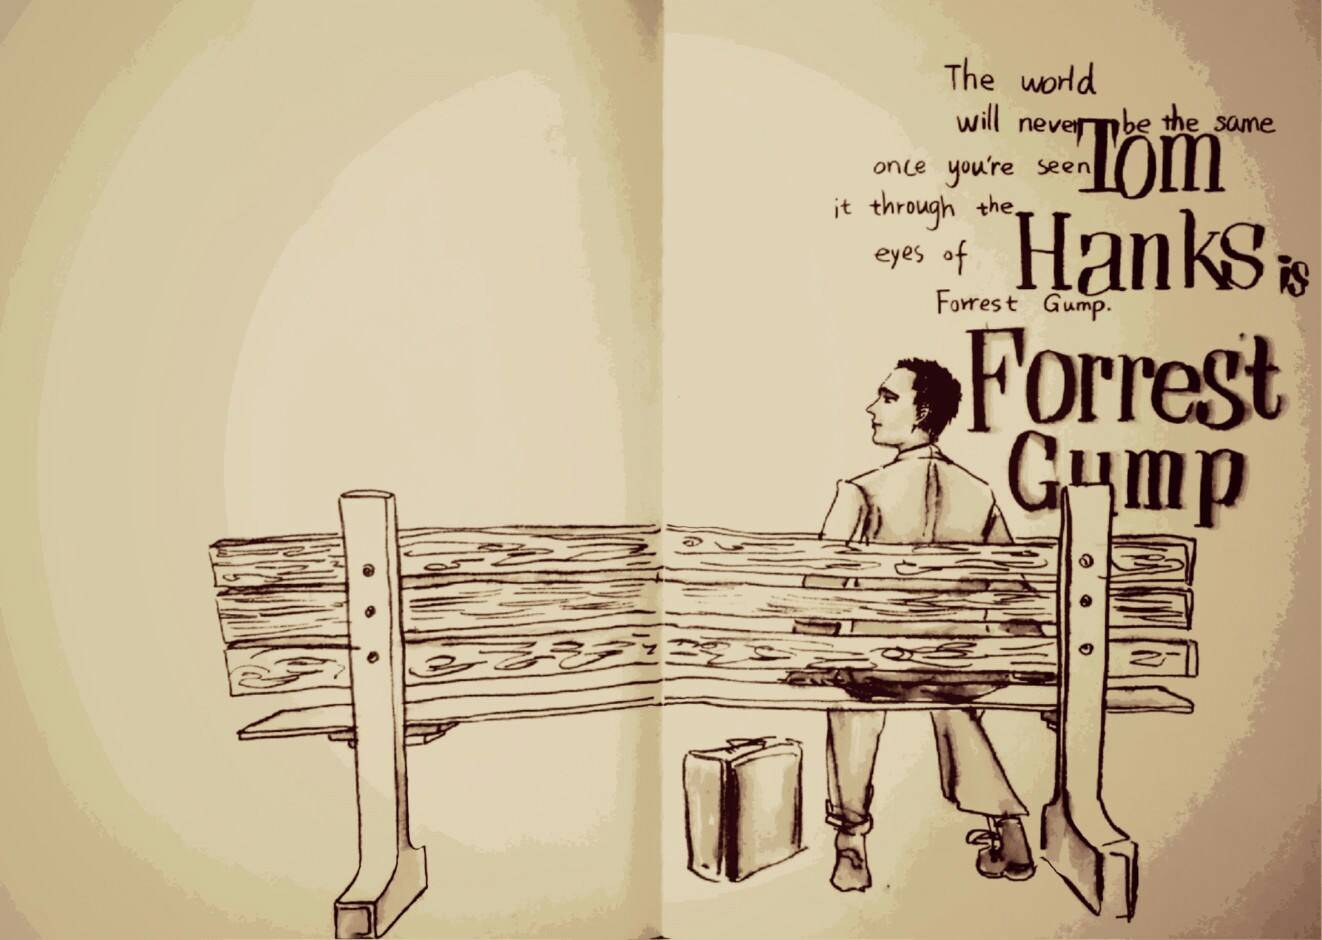 The world
will never be the same
once you're seen
it through the
eyes of
Forrest Gump.
Tom
Hanks is
Forrest
Gump